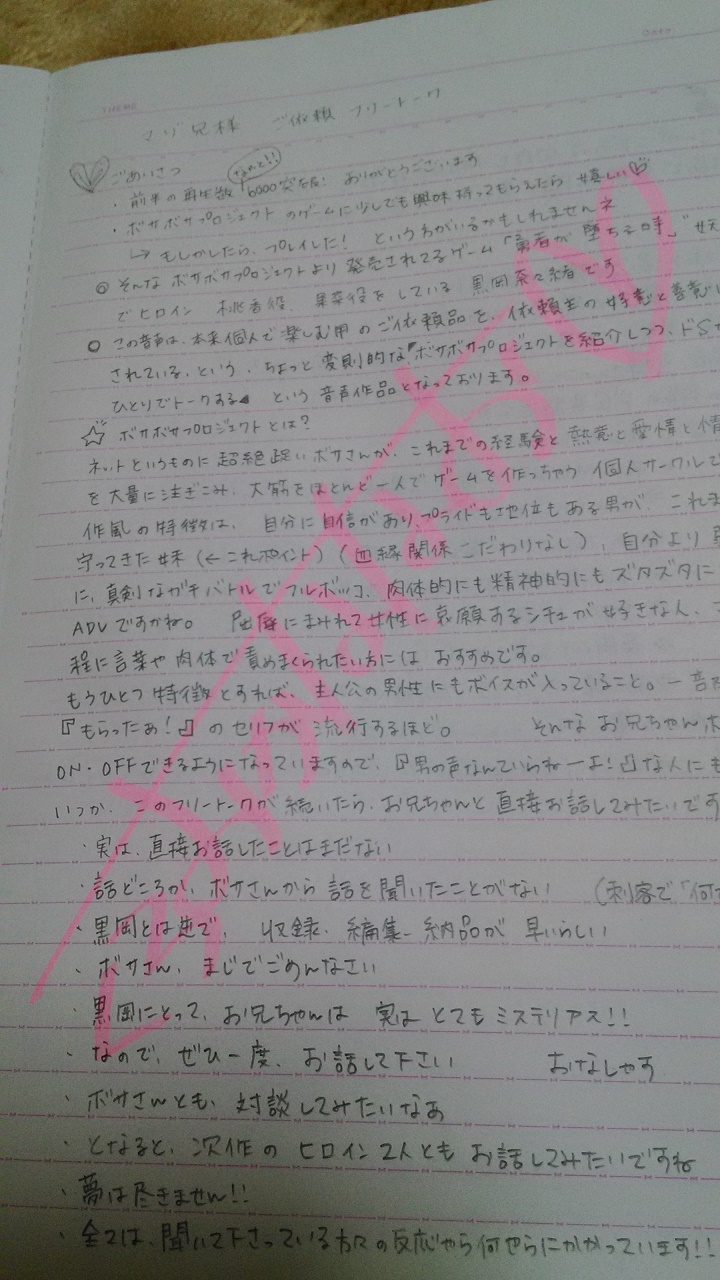 THEME
DATE
マゾ兄様 ご依頼 フリートーク
ごあいさつ
なんと!!
・前半の再生数 6000突破! ありがとうございます
・ボサボサプロジェクトのゲームに少しでも興味持ってもらえたら嬉しい♡
↳ もしかしたら、プレイした! という方がいるかもしれませんネ
◎ そんな ボサボサプロジェクトより 発売されてるゲーム「勇者が堕ちる時」
でヒロイン 桃香役、果菜役をしている 黒岡奈々緒です
○ この音声は、本来個人で楽しむ用のご依頼品を、依頼主の好意と善意
されている、という、ちょっと変則的な『ボサボサプロジェクトを紹介しつつ、ドS
ひとりでトークする という 音声作品となっております。
☆ ボサボサプロジェクトとは?
ネットというものに超絶疎いボサさんが、これまでの経験と熱意と愛情と情
を大量に注ぎこみ、大筋をほとんど一人でゲームを作っちゃう 個人サークルで
作風の特徴は、自分に自信があり、プライドも地位もある男が、これま
守ってきた妹(←これポイント)(血縁関係こだわりなし)、自分より
に、真剣なガチバトルでフルボッコ、肉体的にも精神的にもズタズタに
ADVですかね。 屈辱にまみれて女性に哀願するシチュが好きな人、
程に言葉や肉体で責めまくられたい方には おすすめです。
もうひとつ特徴とすれば、主人公の男性にもボイスが入っていること。一言
『もらったぁ!』のセリフが流行するほど。 そんなお兄ちゃんボ
ON・OFFできるようになっていますので、『男の声なんていらねーよ!』な人にも
いつか、このフリートークが続いたら、お兄ちゃんと直接お話してみたいです
・実は、直接お話したことはまだない
・話どころか、ボサさんから話を聞いたことがない (刺客で「何
・黒岡とは逆で、収録、編集、納品が 早いらしい
・ボサさん、まじでごめんなさい
・黒岡にとって、お兄ちゃんは 実は とてもミステリアス!!
・なので、ぜひ一度、お話して下さい おなしゃす
・ボサさんとも、対談してみたいなぁ
・となると、次作の ヒロイン2人とも お話してみたいですね
・夢は尽きません!!
・全ては、聞いて下さっている方々の反応やら何やらにかかっています!!